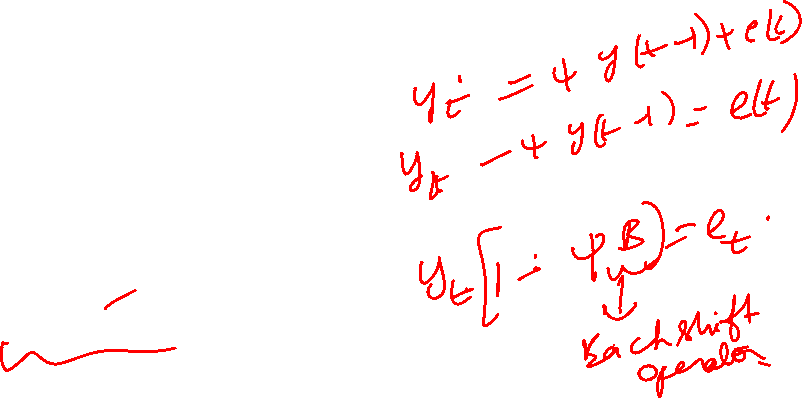 y_t = φ y(t-1) + e(t)
y_t - φ y(t-1) = e(t)
y_t [1 - φB) = e_t.
Backshift
operator